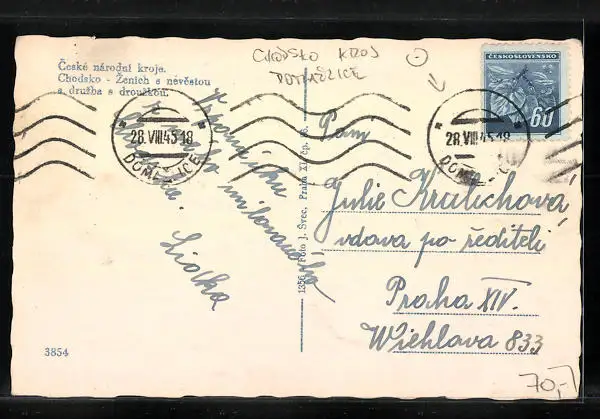 České národní kroje.
Chodsko - Ženich s nevěstou
a družba s droužkou.
CHODSKO KROJ
DOMAŽLICE
ČESKOSLOVENSKO
60
28.VIII.45-18
DOMAŽLICE
28.VIII.45-18
DOMAŽLICE
Vzpomínku
Liduška
1356 Foto J. Švec, Praha XI., čp.
Paní
Julie Kralichová
vdova po řediteli
Praha XIV.
Wiehlova 833
3854
70,-